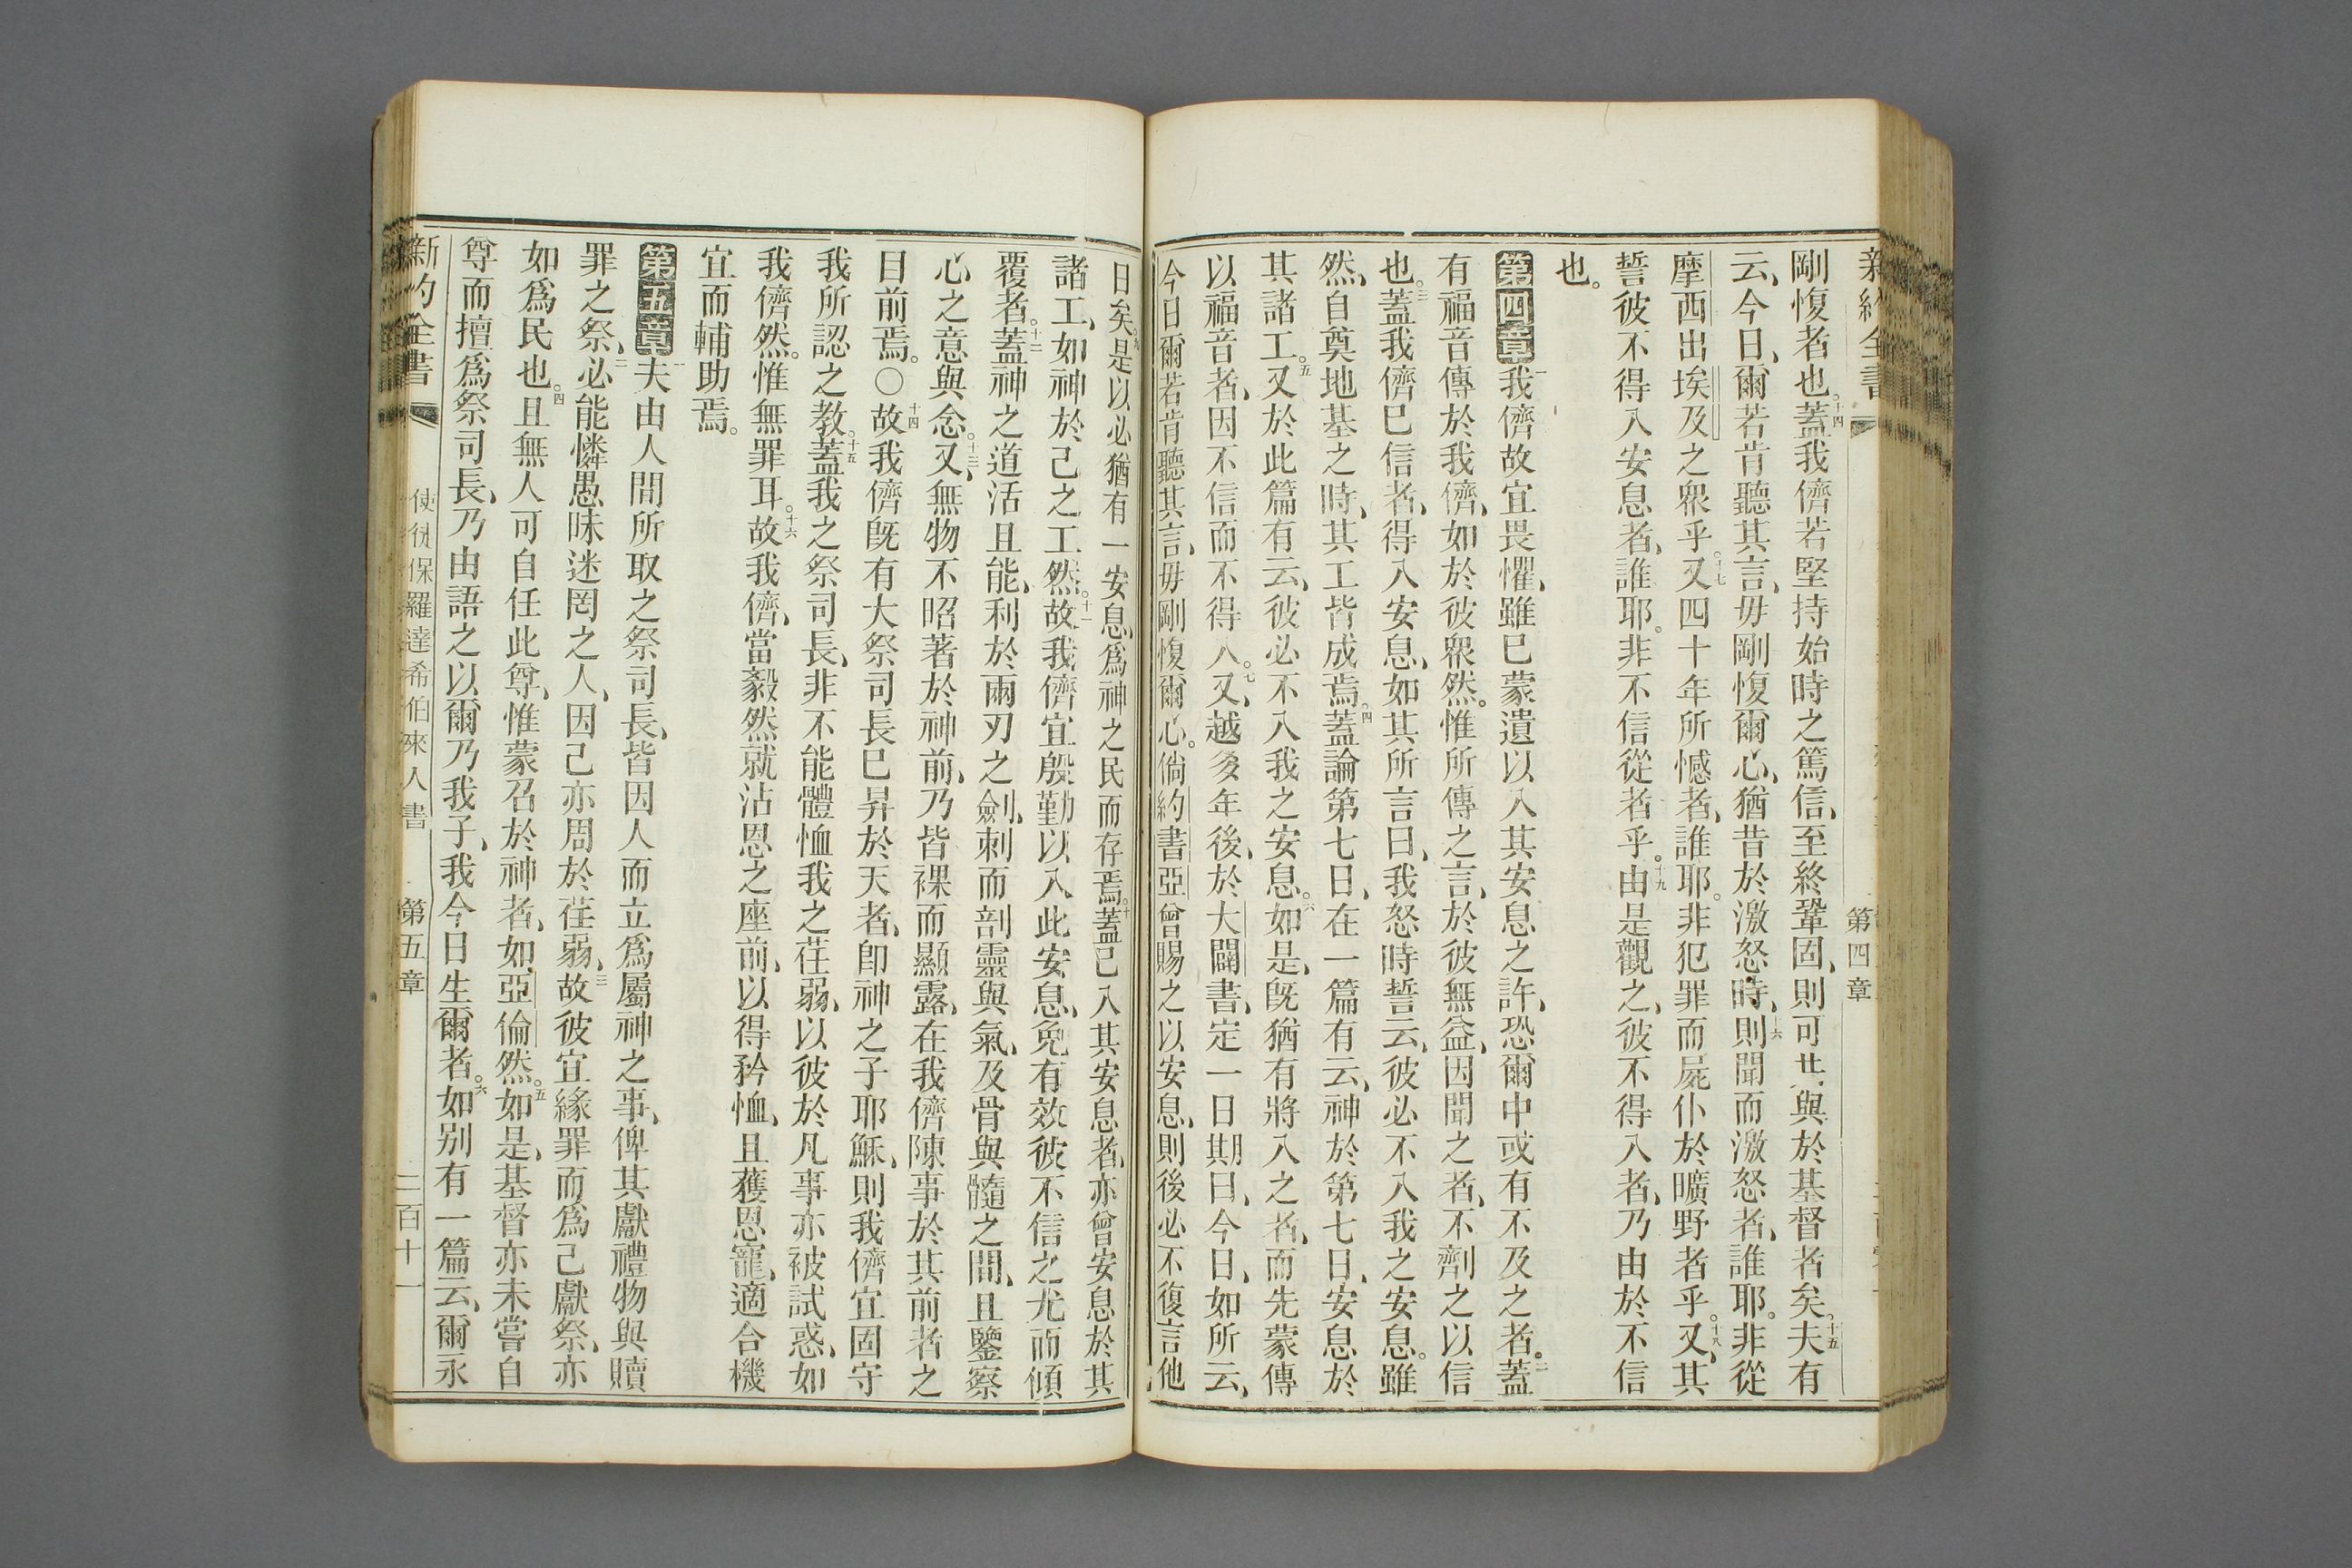 新約全書
第四章
剛愎者也。十四蓋我儕若堅持始時之篤信、至終鞏固、則可共與於基督者矣。十五夫有
云、今日、爾若肯聽其言、毋剛愎爾心、猶昔於激怒時、十六則聞而激怒者、誰耶。非從
摩西出埃及之眾乎。十七又四十年所憾者、誰耶。非犯罪而屍仆於曠野者乎。十八又、其
誓彼不得入安息者、誰耶。非不信從者乎。十九由是觀之、彼不得入者、乃由於不信
也。
第四章一我儕故宜畏懼、雖已蒙遺以入其安息之許、恐爾中或有不及之者。二蓋
有福音傳於我儕、如於彼眾然。惟所傳之言、於彼無益、因聞之者、不劑之以信
也。三蓋我儕已信者、得入安息、如其所言曰、我怒時誓云、彼必不入我之安息。雖
然、自奠地基之時、其工皆成焉。四蓋論第七日、在一篇有云、神於第七日、安息於
其諸工。五又於此篇有云、彼必不入我之安息。六如是、既猶有將入之者、而先蒙傳
以福音者、因不信而不得入。七又、越多年後、於大闢書、定一日期曰、今日、如所云、
今日爾若肯聽其言、毋剛愎爾心。倘約書亞曾賜之以安息、則後必不復言他
日矣。九是以必猶有一安息、為神之民而存焉。十蓋已入其安息者、亦曾安息於其
諸工、如神於己之工然。十一故我儕宜殷勤以入此安息、免有效彼不信之尤而傾
覆者。十二蓋神之道活且能、利於兩刃之劍、刺而剖靈與氣、及骨與髓之間、且鑒察
心之意與念。十三又、無物不昭著於神前、乃皆裸而顯露、在我儕陳事於其前者之
目前焉。〇十四故我儕既有大祭司長已昇於天者、即神之子耶穌、則我儕宜固守
我所認之教。十五蓋我之祭司長、非不能體恤我之荏弱、以彼於凡事亦被試惑、如
我儕然。惟無罪耳。十六故我儕、當毅然就沾恩之座前、以得矜恤、且獲恩寵、適合機
宜而輔助焉。
第五章一夫由人間所取之祭司長、皆因人而立、為屬神之事、俾其獻禮物與贖
罪之祭、二必能憐愚昧迷罔之人、因己亦周於荏弱、三故彼宜緣罪而為己獻祭、亦
如為民也。四且無人可自任此尊、惟蒙召於神者、如亞倫然。五如是、基督亦未嘗自
尊而擅為祭司長、乃由語之以爾乃我子、我今日生爾者。六如別有一篇云、爾永
新約全書
使徒保羅達希伯來人書
第五章
二百十一